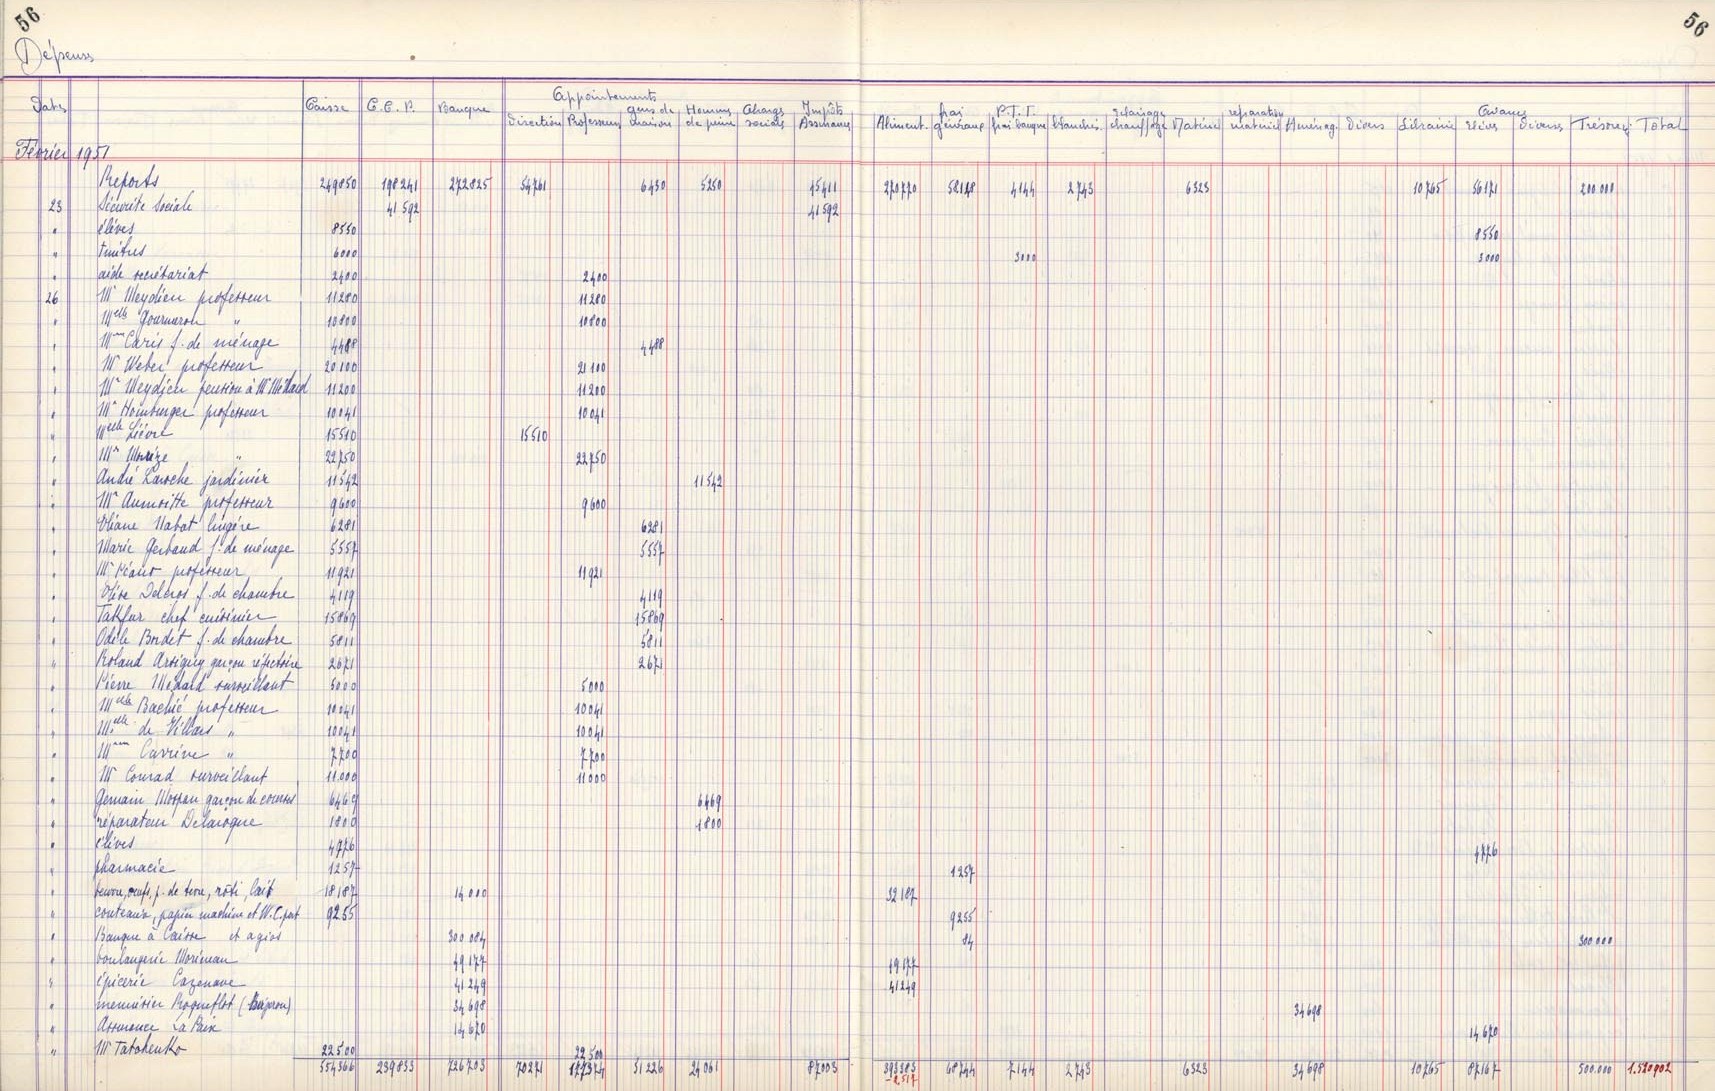 56
56
Dépenses
Appointements
Avances
Dates Caisse C.C.P. Banque direction Professeurs gens de maison Hommes de peine Charges sociales Impôts Assurances Aliment. frais généraux P.T.T. frais banque blanchis. éclairage chauffage Matériel réparation matériel Aménag. divers Librairie élèves diverses Trésorerie Total
Février 1951
Reports 249850 198241 272825 54761 6430 5250 45411 58128 4144 2743 6323 10765 56171 200.000
23 Sécurité Sociale 41592 41592
" élèves 8550 8550
" timbres 6000 3000 3000
" aide secrétariat 2400 2400
26 Mr Meydieu professeur 11280 11280
" Melle " 10800 10800
" Mme Caris f. de ménage 4488 4488
" Mr Weber professeur 20100 21100
" Mr Meydieu pension à Mr Médard 11200 11200
" Mr Homburger professeur 10041 10041
" Melle Lièvre 15510 15510
" Mr " 22750 22750
" André Laroche jardinier 11542 11542
" Mr professeur 9600 9600
" Nabat lingère 6281 6281
" Marie Gerbaud f. de ménage 5557 5557
" Mr professeur 11921 11921
" Delcros f. de chambre 4119 4119
" chef cuisinier 15869 15869
" Odile Bordet f. de chambre 5811 5811
" Roland garçon réfectoire 2671 2671
" Pierre Médard surveillant 5000 5000
" Melle Bachié professeur 10041 10041
" Melle de Villars " 10041 10041
" Mme Carrive " 7700 7700
" Mr Conrad surveillant 11.000 11000
" Germain garçon de courses 6469 6469
" réparateur Delaroque 1800 1800
" élèves 4776 4776
" pharmacie 1257 1257
" beurre, oeufs, p. de terre, rôti, lait 18187 14000 32187
" couteaux, papier machine et W.C. port 9255 9255
" Banque à Caisse et agios 300084 84 300.000
" boulangerie Morineau 49177 49177
" épicerie Cazenave 41249 41249
" menuisier Roqueflot 34698 34698
" Assurance La Paix 14670 14670
" Mr Tatchenko 22500 22500
554366 239833 726703 70271 51226 24061 87003 393383 68744 7144 2743 6323 34698 10765 87167 500.000 1.520902
-2.517